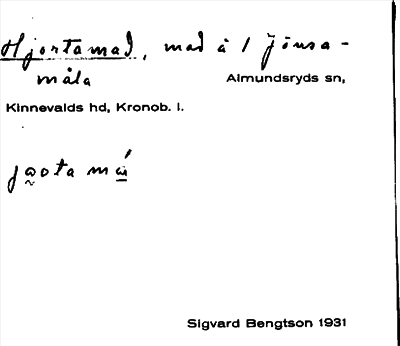 Hjortamad, mad å 1 Jönsa-
måla Almundsryds sn,
Kinnevalds hd, Kronob. l.
jaota má
Sigvard Bengtson 1931